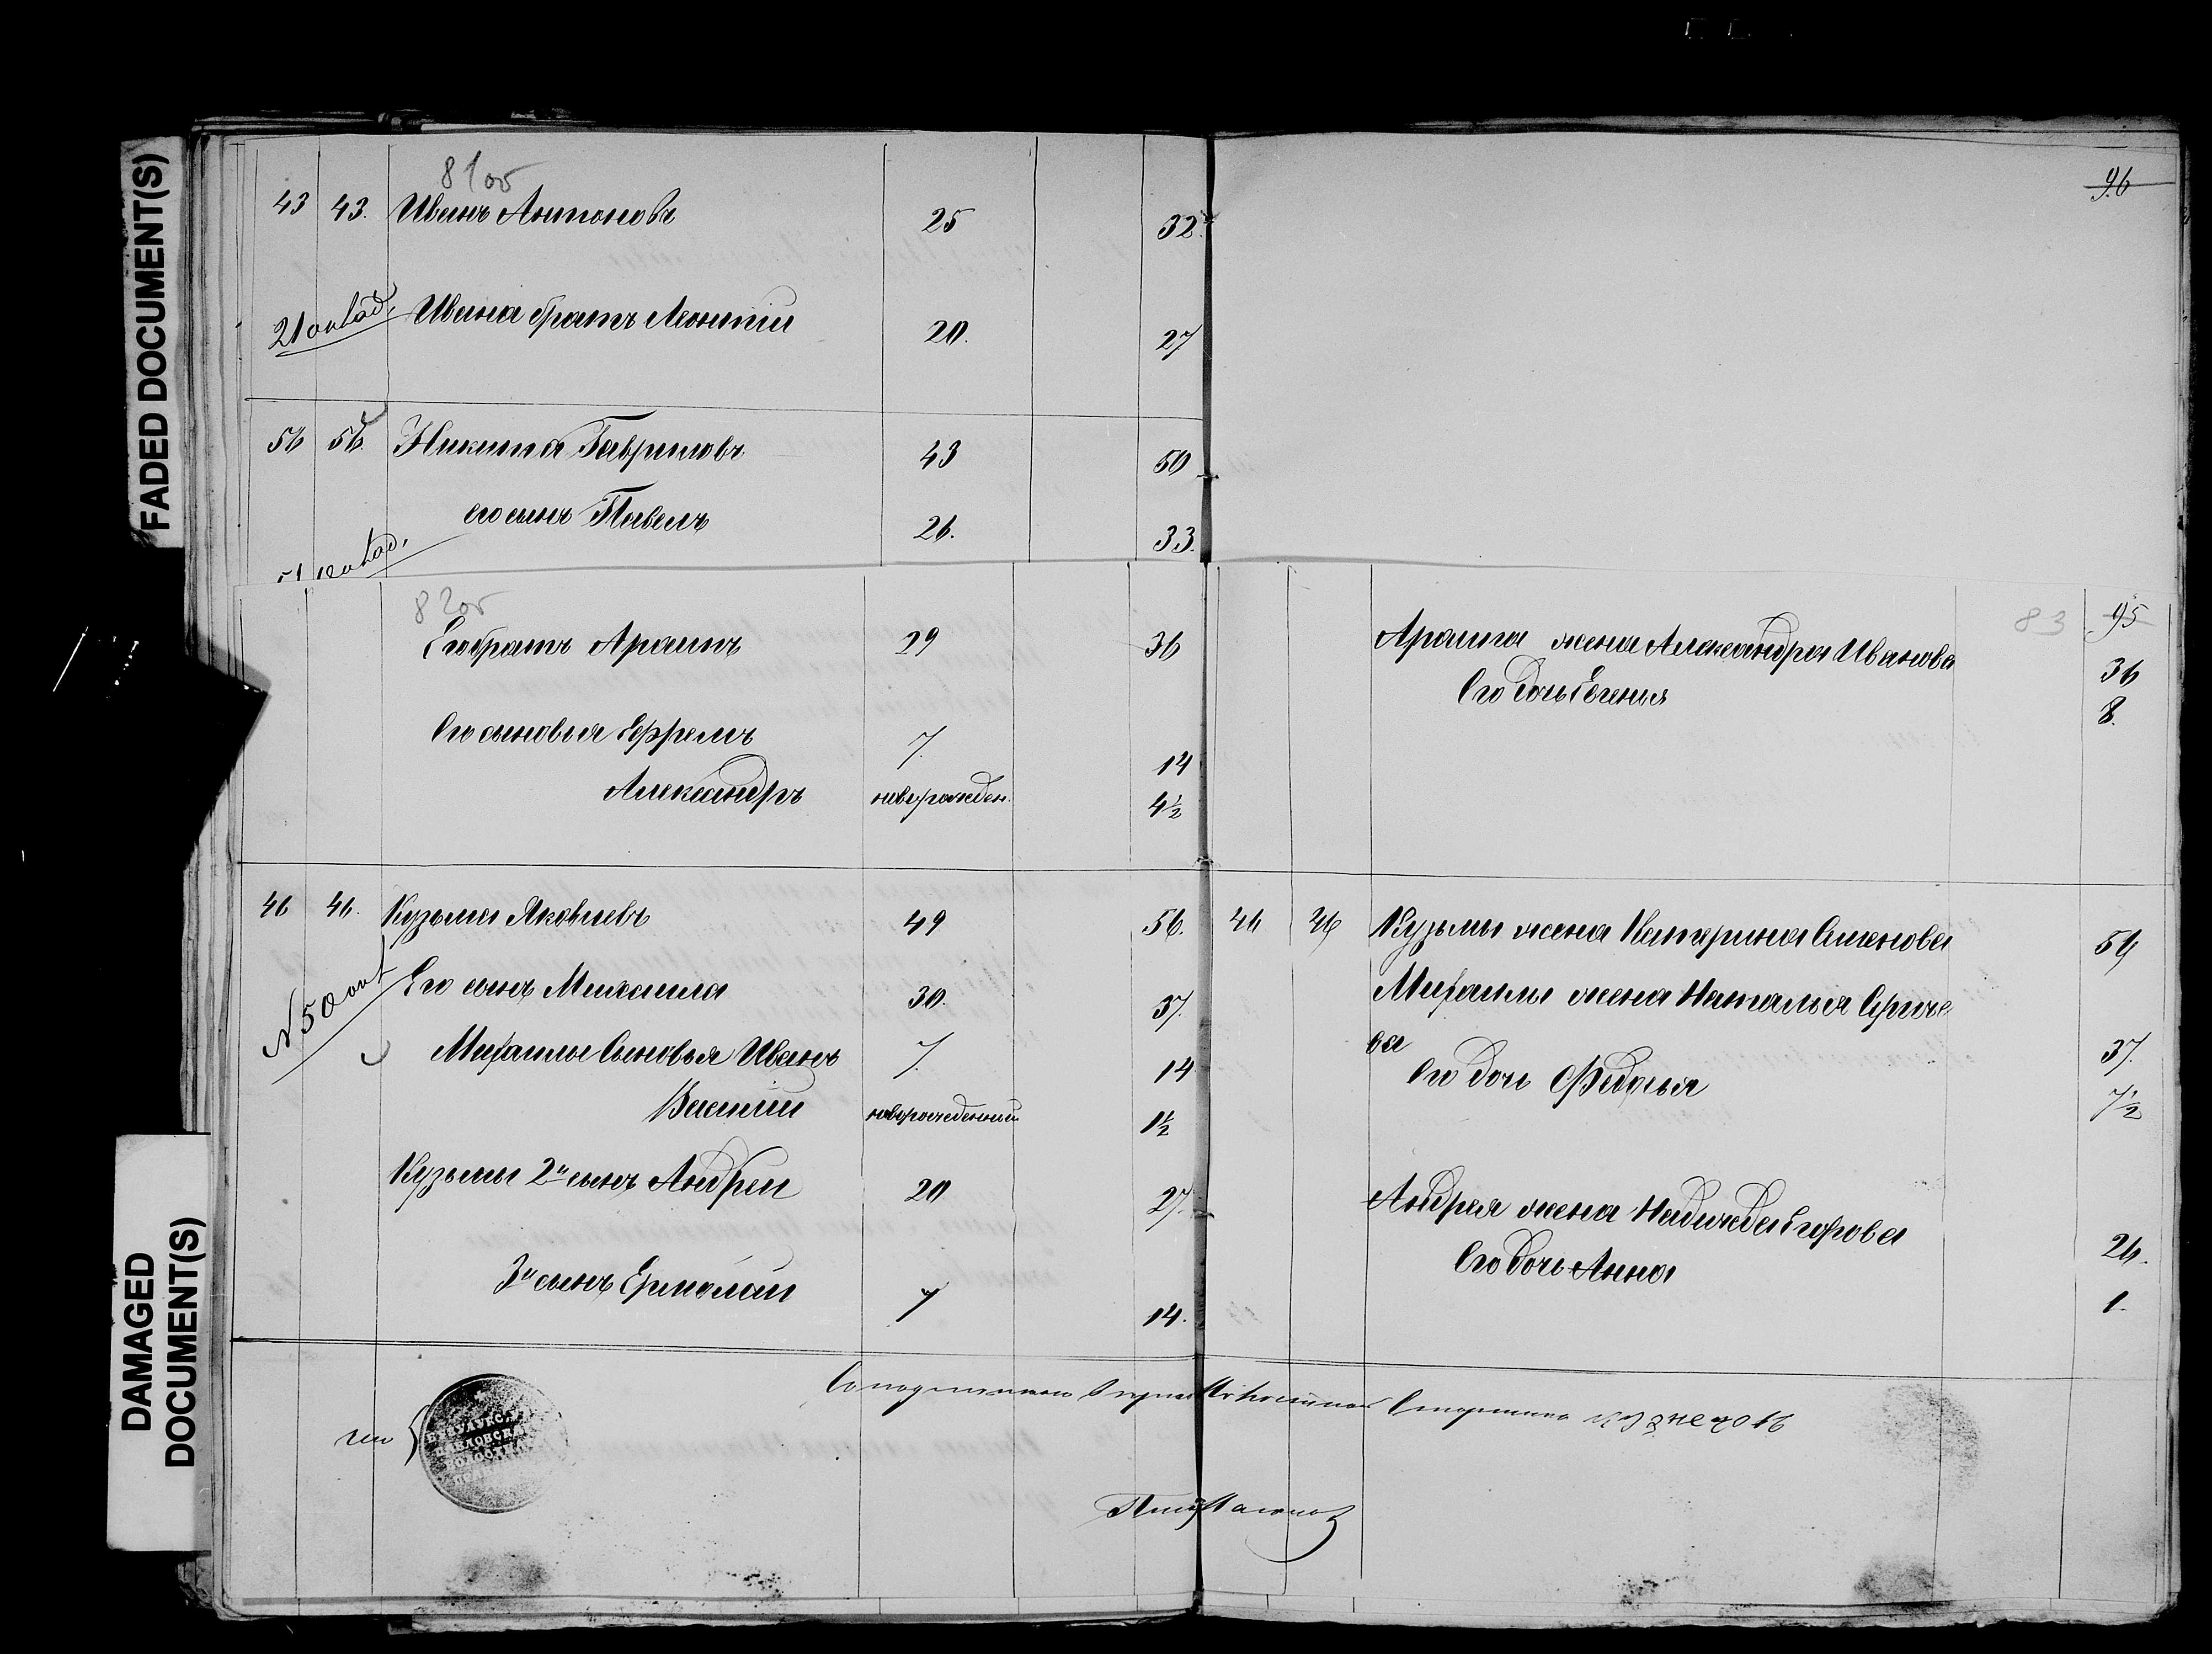 FADED DOCUMENT(S)
DAMAGED DOCUMENT(S)
81об
96
43 43. Иванъ Антоновъ 25 32.
Ивана братъ Леонтiй 20. 27
56 56. Никита Гавриловъ 43 50
его сынъ Павелъ 26. 33.
82об
83 95
Его братъ Архипъ 29 36
Его сыновья Ефремъ 7. 14
Александръ новорожден. 4½
46 46. Кузьма Яковлевъ 49 56.
N 50
Его сынъ Михаила 30. 37.
Михаилы Сыновья Иванъ 7. 14
Василiй новорожденный 1½
Кузьмы 2й сынъ Андрей 20 27.
3й сынъ Ермолай 7 14.
Архипа жена Александра Иванова 36
Его дочь Евгенiя 8.
46 46 Кузьмы жена Катерина Семенова 54
Михаилы жена Наталья Сергее
ва 37.
Его дочь Федосья 7½
Андрея жена Надежда Егорова 26.
Его дочь Анна 1.
Старшина Кузнецовъ